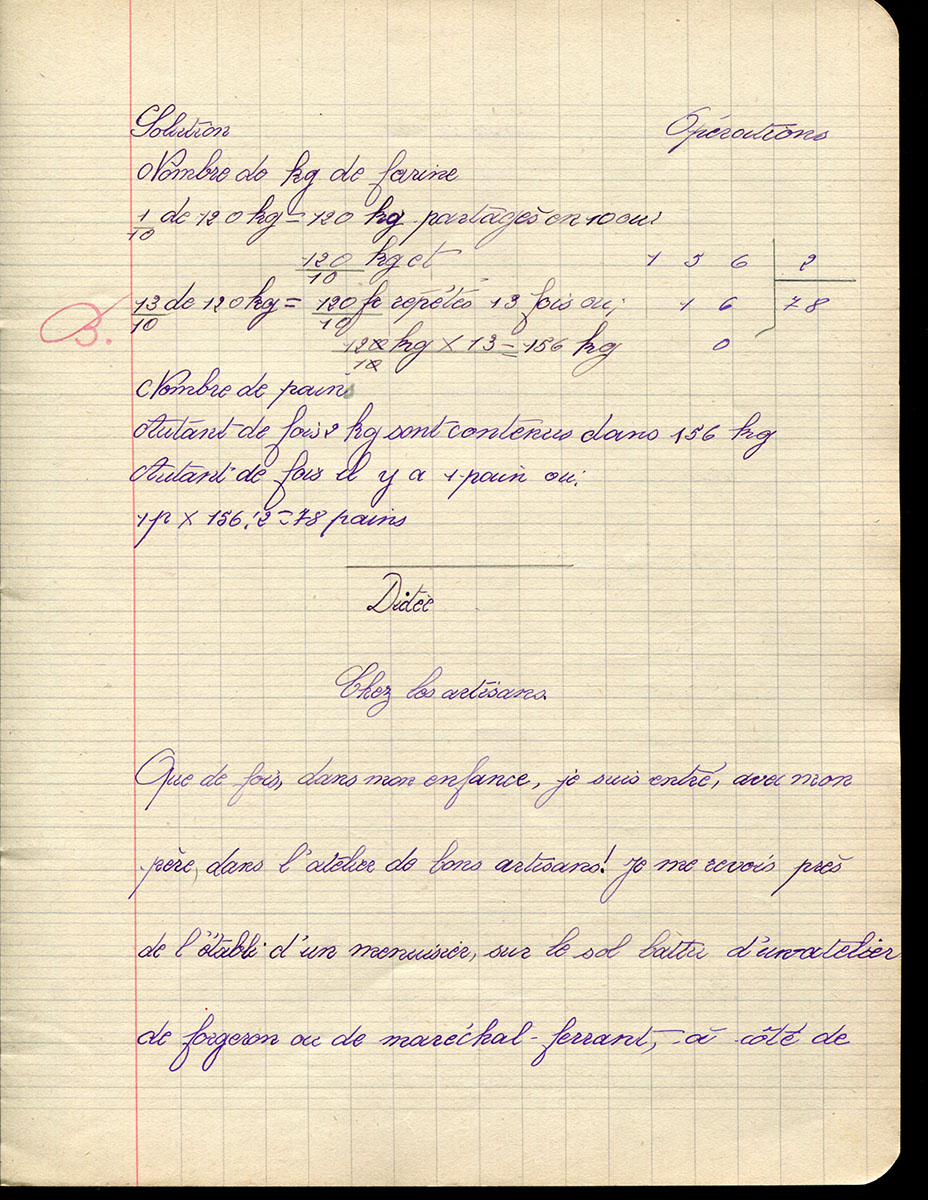 Solution Opérations
Nombre de kg de farine
1/10 de 120 kg = 120 kg partagés en 10 ou:
120/10 kg et
1 5 6 | 2
13/10 de 120 kg = 120/10 fr répétés 13 fois ou;
1 6 78
B.
120/10 kg x 13 = 156 kg
0
Nombre de pains
Autant de fois 2 kg sont contenus dans 156 kg
Autant de fois il y a 1 pain ou:
1p x 156:2 = 78 pains
Dictée
Chez les artisans.
Que de fois, dans mon enfance, je suis entré, avec mon
père, dans l'atelier de bons artisans! Je me revois près
de l'établi d'un menuisier, sur le sol battu d'un atelier
de forgeron ou de maréchal-ferrant, à côté de